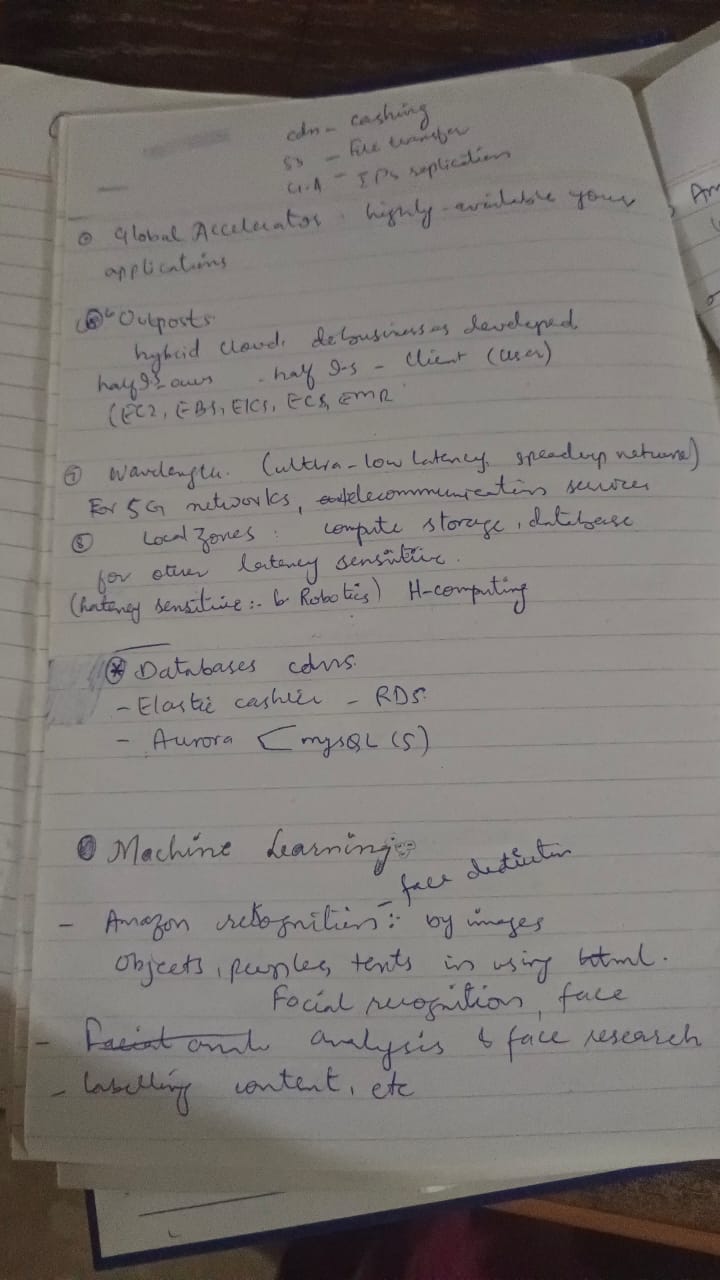 cdn - cashing
S3 - File transfer
G.A - IPs replication
Global Accelerator : highly-available your
applications
Outposts
hybrid cloud, developed
half I-S aws - half I-S - client (user)
(EC2, EBS, EKS, ECS, EMR
⑦ Wavelength. (ultra-low latency, speedup network)
For 5G networks, telecommunication services
⑧ Local Zones : compute storage, database
for other latency sensitive.
(Latency sensitive :- Robotics) H-computing
Databases cdns
- Elastic cashier - RDS
- Aurora [mySQL (5)
Machine Learning :-
- face detection
- Amazon rekognition :- by images
Objects, peoples, texts in using html.
Facial recognition, face
- analysis & face research
- Labelling content, etc
Am